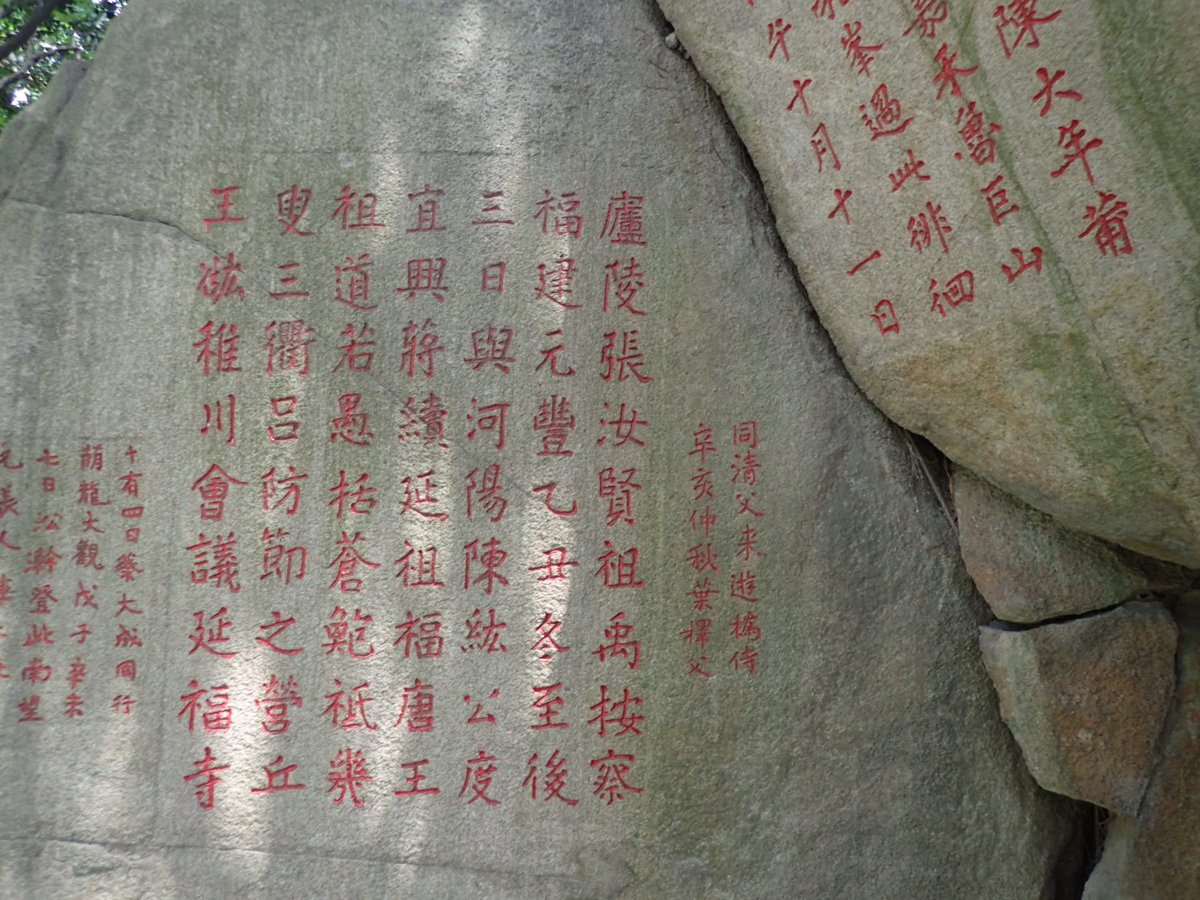 陳大年莆
嘉禾魯巨山
峯過此徘徊
午十月十一日
同清父来遊㧑侍
辛亥仲秋葉擇父
廬陵張汝賢祖禹按察
福建元豐乙丑冬至後
三日與河陽陳紘公度
宜興蔣續延祖福唐王
祖道若愚括蒼鮑祗㡬
叟三衢吕防節之營丘
王㳒稚川會議延福寺
十有四日蔡大成同行
蓢龍大觀戊子辛未
七日公幹登此南望
元張人